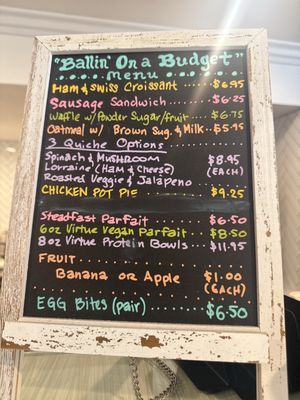 "Ballin' On a Budget"
Menu
Ham & Swiss Croissant $6.95
Sausage Sandwich $6.25
Waffle w/ Powder Sugar/Fruit $6.75
Oatmeal w/ Brown Sug. & Milk $5.95
3 Quiche Options
Spinach & Mushroom $8.95
Lorraine (Ham & Cheese) (Each)
Roasted Veggie & Jalapeno
Chicken Pot Pie $9.25
Steadfast Parfait $6.50
6oz Virtue Vegan Parfait $8.50
8oz Virtue Protein Bowls $11.95
Fruit
Banana or Apple $1.00
(Each)
Egg Bites (pair) $6.50